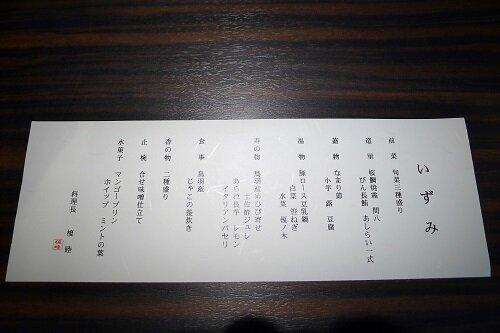 いずみ
前菜 旬菜三種盛り
造里 桜鯛焼霜 間八
びん長鮪 あしらい一式
蓋物 なまり節
小芋 蕗 豆腐
温物 豚ロース豆乳鍋
白菜 笹ねぎ
水菜 榎ノ木
寿の物 鳥羽産めひび寄せ
土佐酢ジュレ
あられ長芋 レモン
イタリアンパセリ
食事 鳥羽産
じゃこの釜炊き
香の物 二種盛り
止椀 合せ味噌仕立て
水菓子 マンゴープリン
ホイップ ミントの葉
料理長 榎 睦